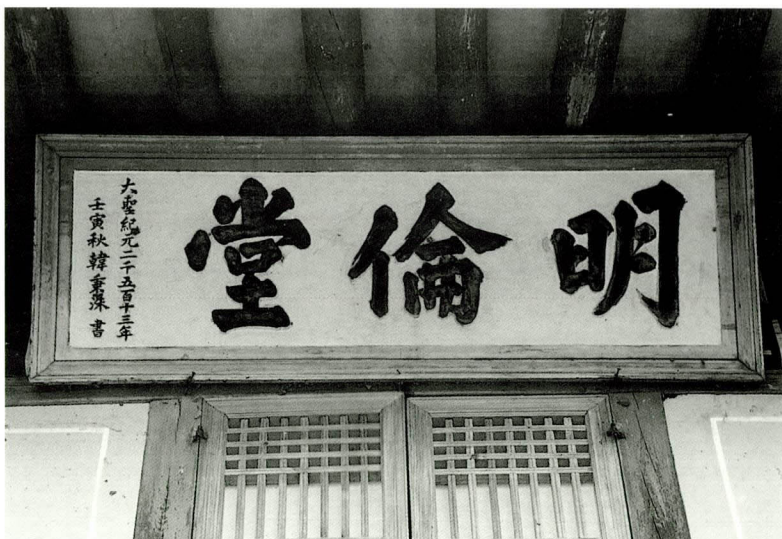 明倫堂
大聖紀元二千五百十三年
壬寅秋 韓秉洙 書